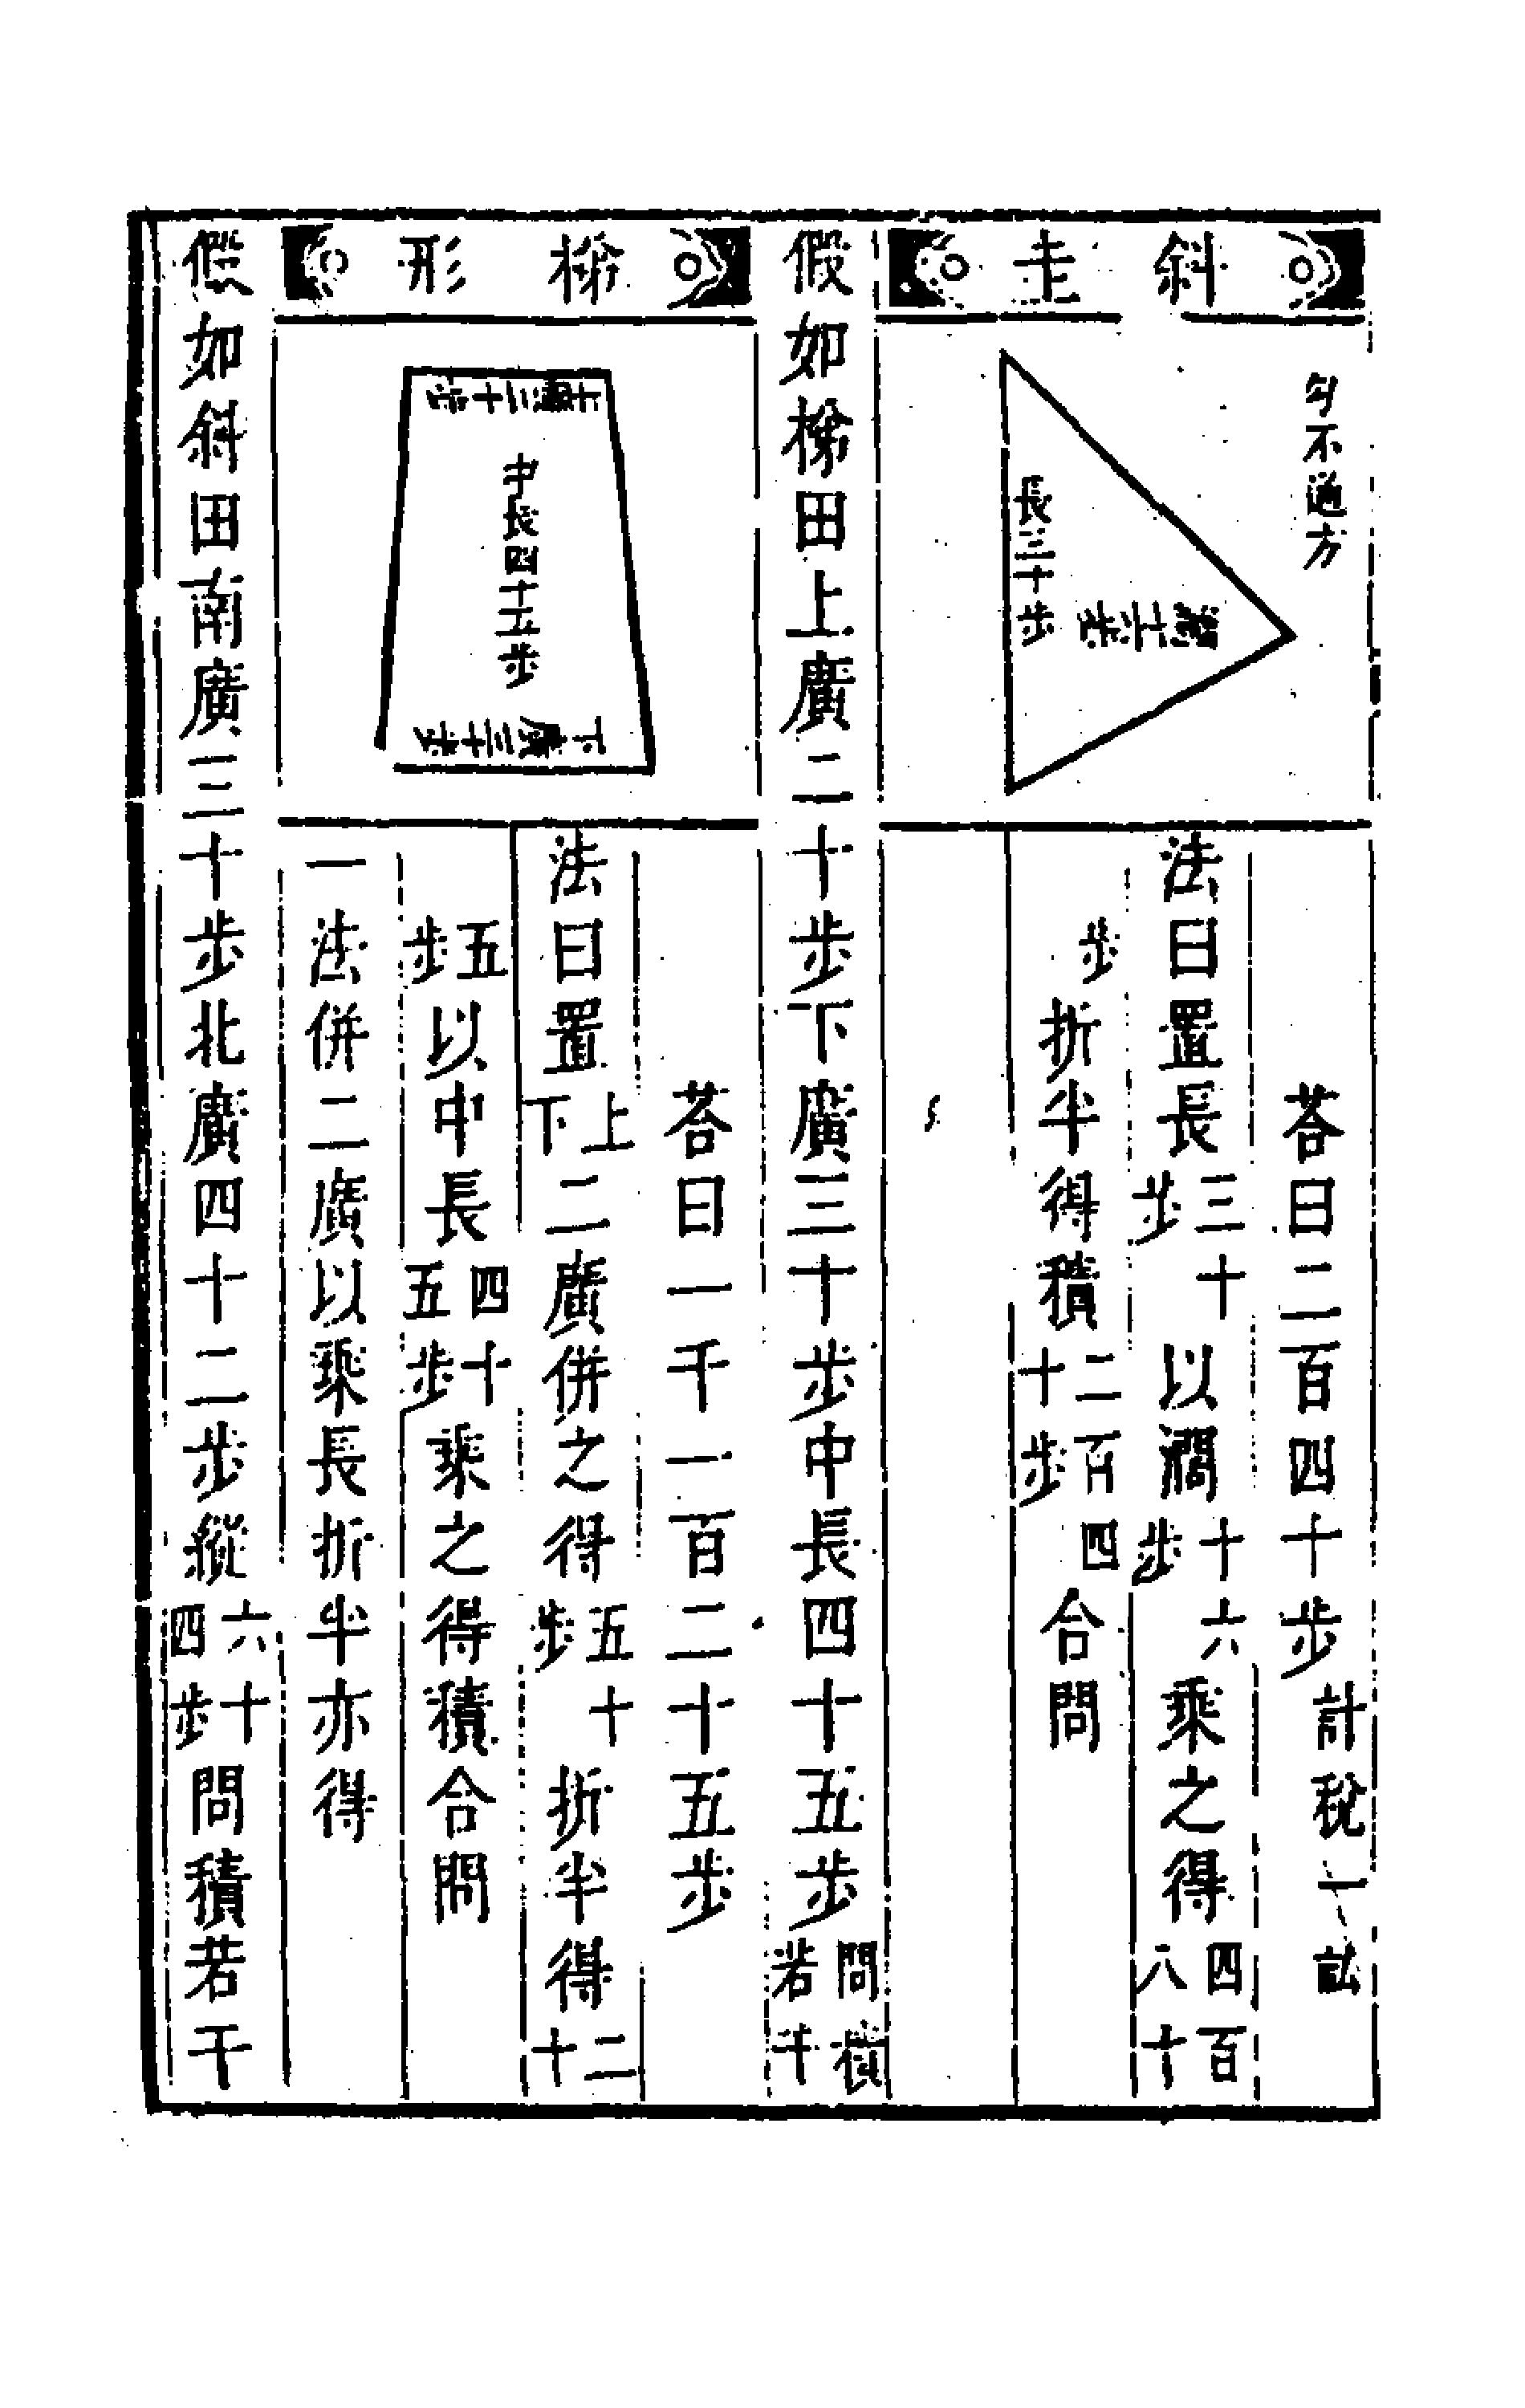 斜圭
勾不通方
濶十六步
長三十步
荅曰二百四十步計稅一畝
法曰置長三十步以濶十六步乘之得四百八十
步折半得積二百四十步合問
假如梯田上廣二十步下廣三十步中長四十五步問積若干
梯形
上廣二十步
中長四十五步
下廣三十步
荅曰一千一百二十五步
法曰置上下二廣併之得五十步折半得二十
五步以中長四十五步乘之得積合問
一法併二廣以乘長折半亦得
假如斜田南廣三十步北廣四十二步縱六十四步問積若干